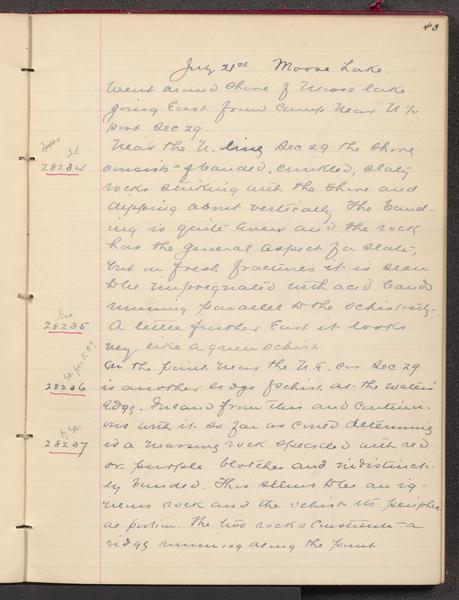 43
July 21st Moose Lake.
Went around shore of Moose lake
going East from Camp Near N 1/4
post Sec 29.
Near the N. line Sec 29 the shore
28234
consists of banded, crinkled, slaty
rocks striking with the shore and
dipping about vertically The band-
ing is quite even and the rock
has the general aspect of a slate,
but in fresh fractures it is seen
to be impregnated with acid bands
running parallel to the schistosity.
28235
A little further East it looks
very like a green schist
On the point near the N.E. cor Sec 29
28236
is another ledge of schist at the water's
edge. Inland from this and continu-
ous with it so far as could determine
28237
is a massive rock speckled with red
or purple blotches and indistinct-
ly banded. This seems to be an ig-
neous rock and the schist its peripher-
al portion. The two rocks constitute a
ridge running along the point.